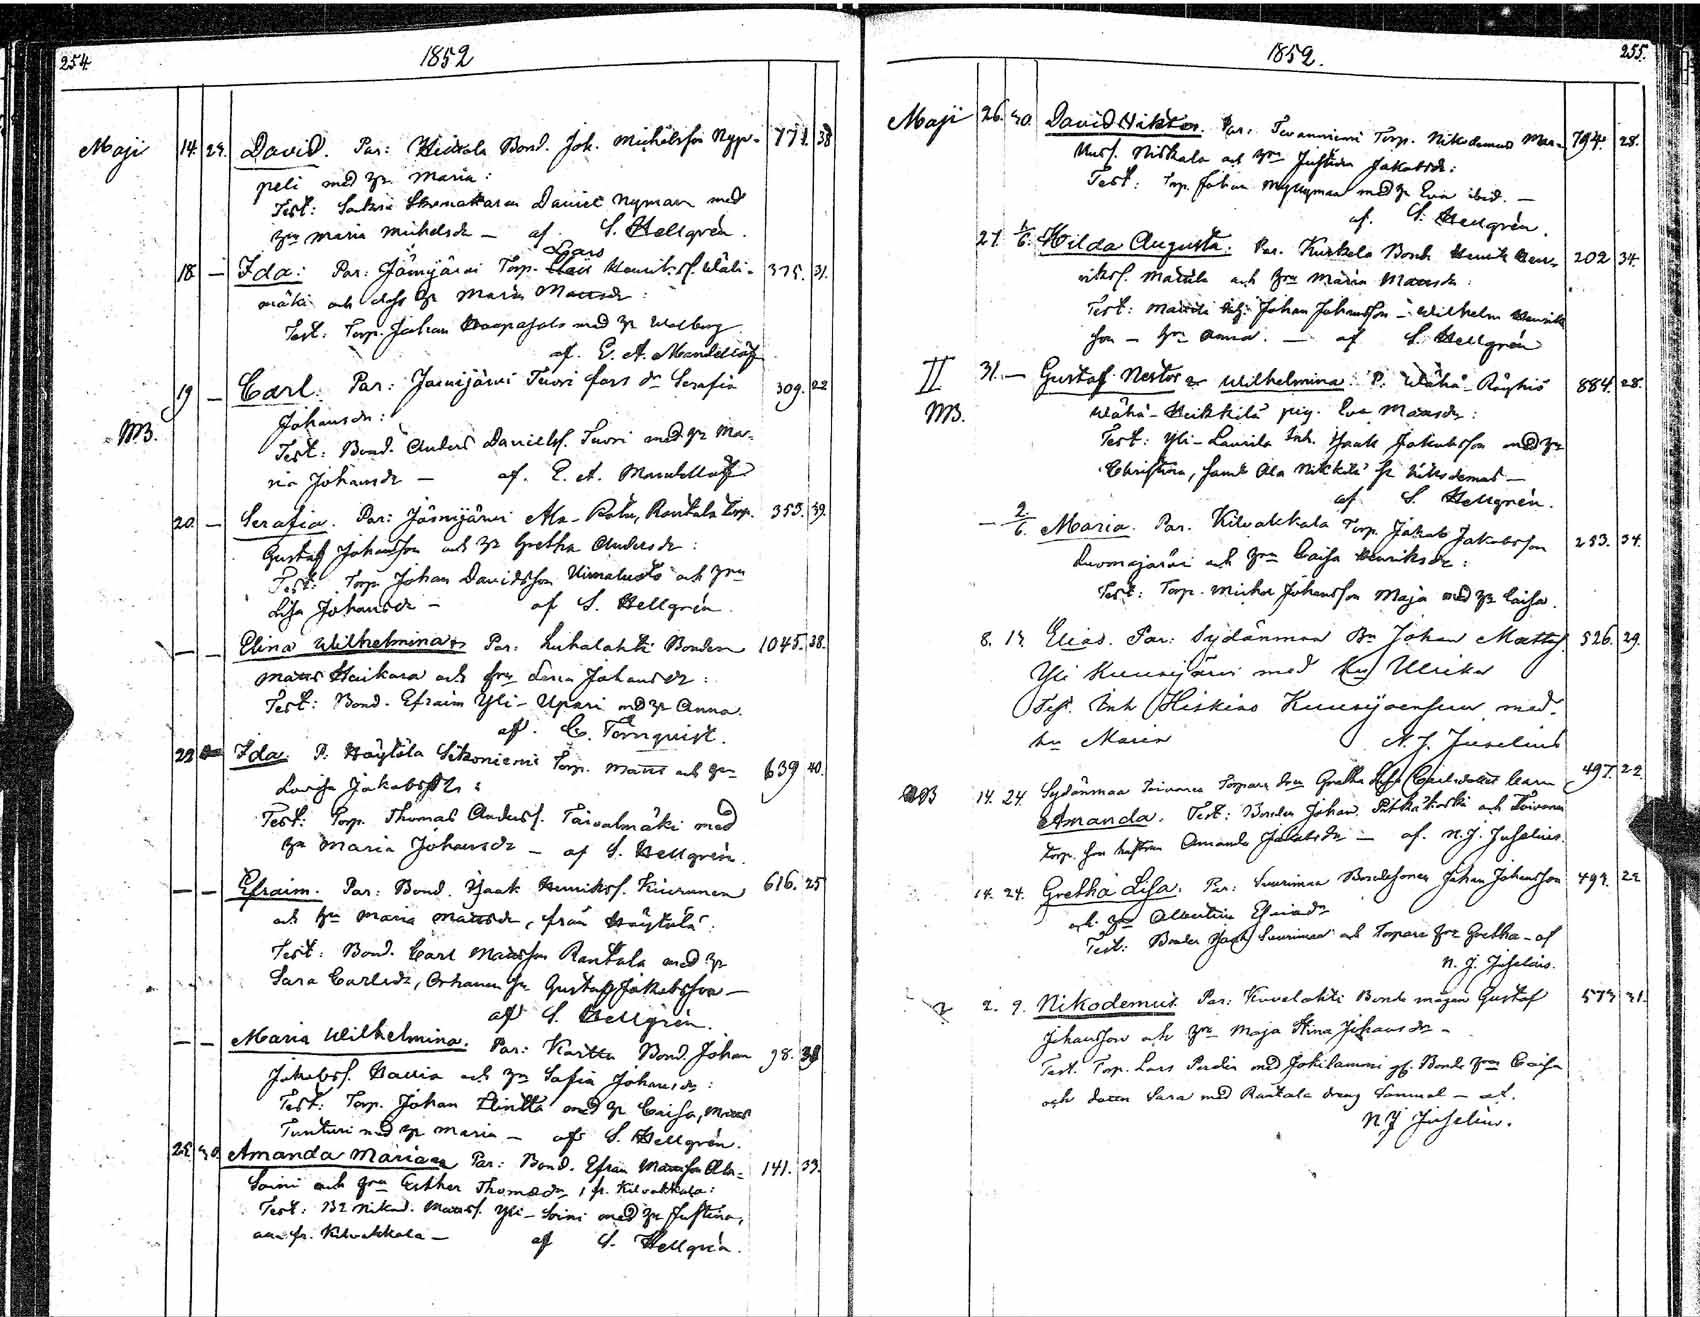 254.
1852
Maji 14. 24. David. Par: Bond. Joh. Michelsson Nyp- 771. 38
peli med hr Maria:
Test: Daniel Nyman med
hru Maria Michelsdr — af S. Hellgrén.
Lars
18 — Ida: Par: Jämijärvi Torp. Henrikss. Wäli- 375. 31.
mäki och dess hr Maria Mattsdr:
Test: Torp. Johan Haapasalo med hr Walborg.
af. E. A. Mandellöf
19 — Carl. Par: Jämijärvi Tuori Serafia 309. 22
Johansdr:
NB.
Test: Bond. Anders Danielss. Tuori med hr Ma-
ria Johansdr — af. E. A. Mandellöf
20. — Serafia. Par: Jämijärvi Ala-Rotu, Rantala Torp. 353. 39.
Gustaf Johansson och hr Gretha Andersdr:
Test: Torp. Johan Davidsson och hru
Lisa Johansdr — af S. Hellgrén.
— — Elina Wilhelmina Par: Luhalahti Bonden 1045. 38.
Matts Haikara och hru Johansdr:
Test: Bond. Efraim Yli-Upari med hr Anna.
af. C. Törnqvist.
22 Ida. P. Höytölä Torp. Matts och hru 639 40.
Lovisa Jakobsdr:
Test: Torp. Thomas Anderss. Taivalmäki med
hr Maria Johansdr — af S. Hellgrén.
— — Efraim. Par: Bond. Isaak Henrikss. Kiurunen 616. 25
och hr Maria Mattsdr, från Höytölä:
Test: Bond. Carl Mattsson Rantala med hr
Sara Carlsdr, fr Gustaf Jakobsson —
af S. Hellgrén.
— — Maria Wilhelmina. Par: Karttu Bond. Johan 98. 38
Jakobss. och hr Sofia Johansdr:
Test: Torp. Johan Hintta med hr Caisa, Matts
Tunturi med hr Maria — af S. Hellgrén.
25. 30. Amanda Maria Par: Bond. Efraim Mattsson Ala- 141. 33.
Soini och hru Esther Thomasdr, fr. Kilvakkala:
Test: Bd Nikod. Mattss. Yli-Soini med hr Justina,
alla fr. Kilvakkala — af S. Hellgrén.
255.
1852.
Maji 26. 30. David Viktor. Par. Torp. Nikodemus Mar- 794. 28.
kuss. Niskala och hru Justina Jakobsdr:
Test: Torp. Johan Myllymaa med hr Eva ibid. —
af. S. Hellgrén.
27. 1/6. Hilda Augusta. Par. Kurkela Bond. Henrik Hen- 202 34.
rikss. Mattila och hru Maria Mattsdr:
Test: Mattila Johan Johansson — Wilhelm Henriks
son — hru Anna. — af S. Hellgrén
II 31. — Gustaf Nestor & Wilhelmina. P. Wähä-Röyhiö 884. 28.
NB.
Wähä-Heikkilä pig. Eva Mattsdr:
Test: Yli-Laurila Inh. Isaak Jakobsson med hr
Christina, samt Ala Nikkilä Nikodemus —
af S. Hellgrén.
— 2/6. Maria. Par. Kilvakkala Torp. Jakob Jakobsson 253. 34.
Luomajärvi och hru Caisa Henriksdr:
Test: Torp. Michel Johansson Maja med hr Caisa.
8. 13. Elias. Par: Sydänmaa Bn Johan Mattss. 526. 29.
Yli Kuusijärvi med hu Ulrika
Test. Inh Hiskias Kuusijoensuu med
hu Maria N. J. Juselius
NB 14. 24. Sydänmaa Toivonen Torpare Gretha Lisa Carlsdotter barn 497. 22.
Amanda. Test: Bonden Johan Pitkäkoski och Toivonen
torp. son hustrun Amanda Jakobsdr — af. N. J. Juselius.
14. 24. Gretha Lisa. Par: Suurimaa Bondesonen Johan Johansson 499. 22
och hr Albertina Esaiadr
Test: Bonden Isaak Suurimaa och Torpare hru Gretha — af
N. J. Juselius.
2. 9. Nikodemus. Par: Kovelahti Bonde mågen Gustaf 573 31.
Johansson och hru Maja Stina Johansdr —
Test. Torp. Lars Perdin med Jokilammi gf. Bonde hru Caisa
och dotter Sara med Rantala dreng Samuel — af.
N J Juselius.